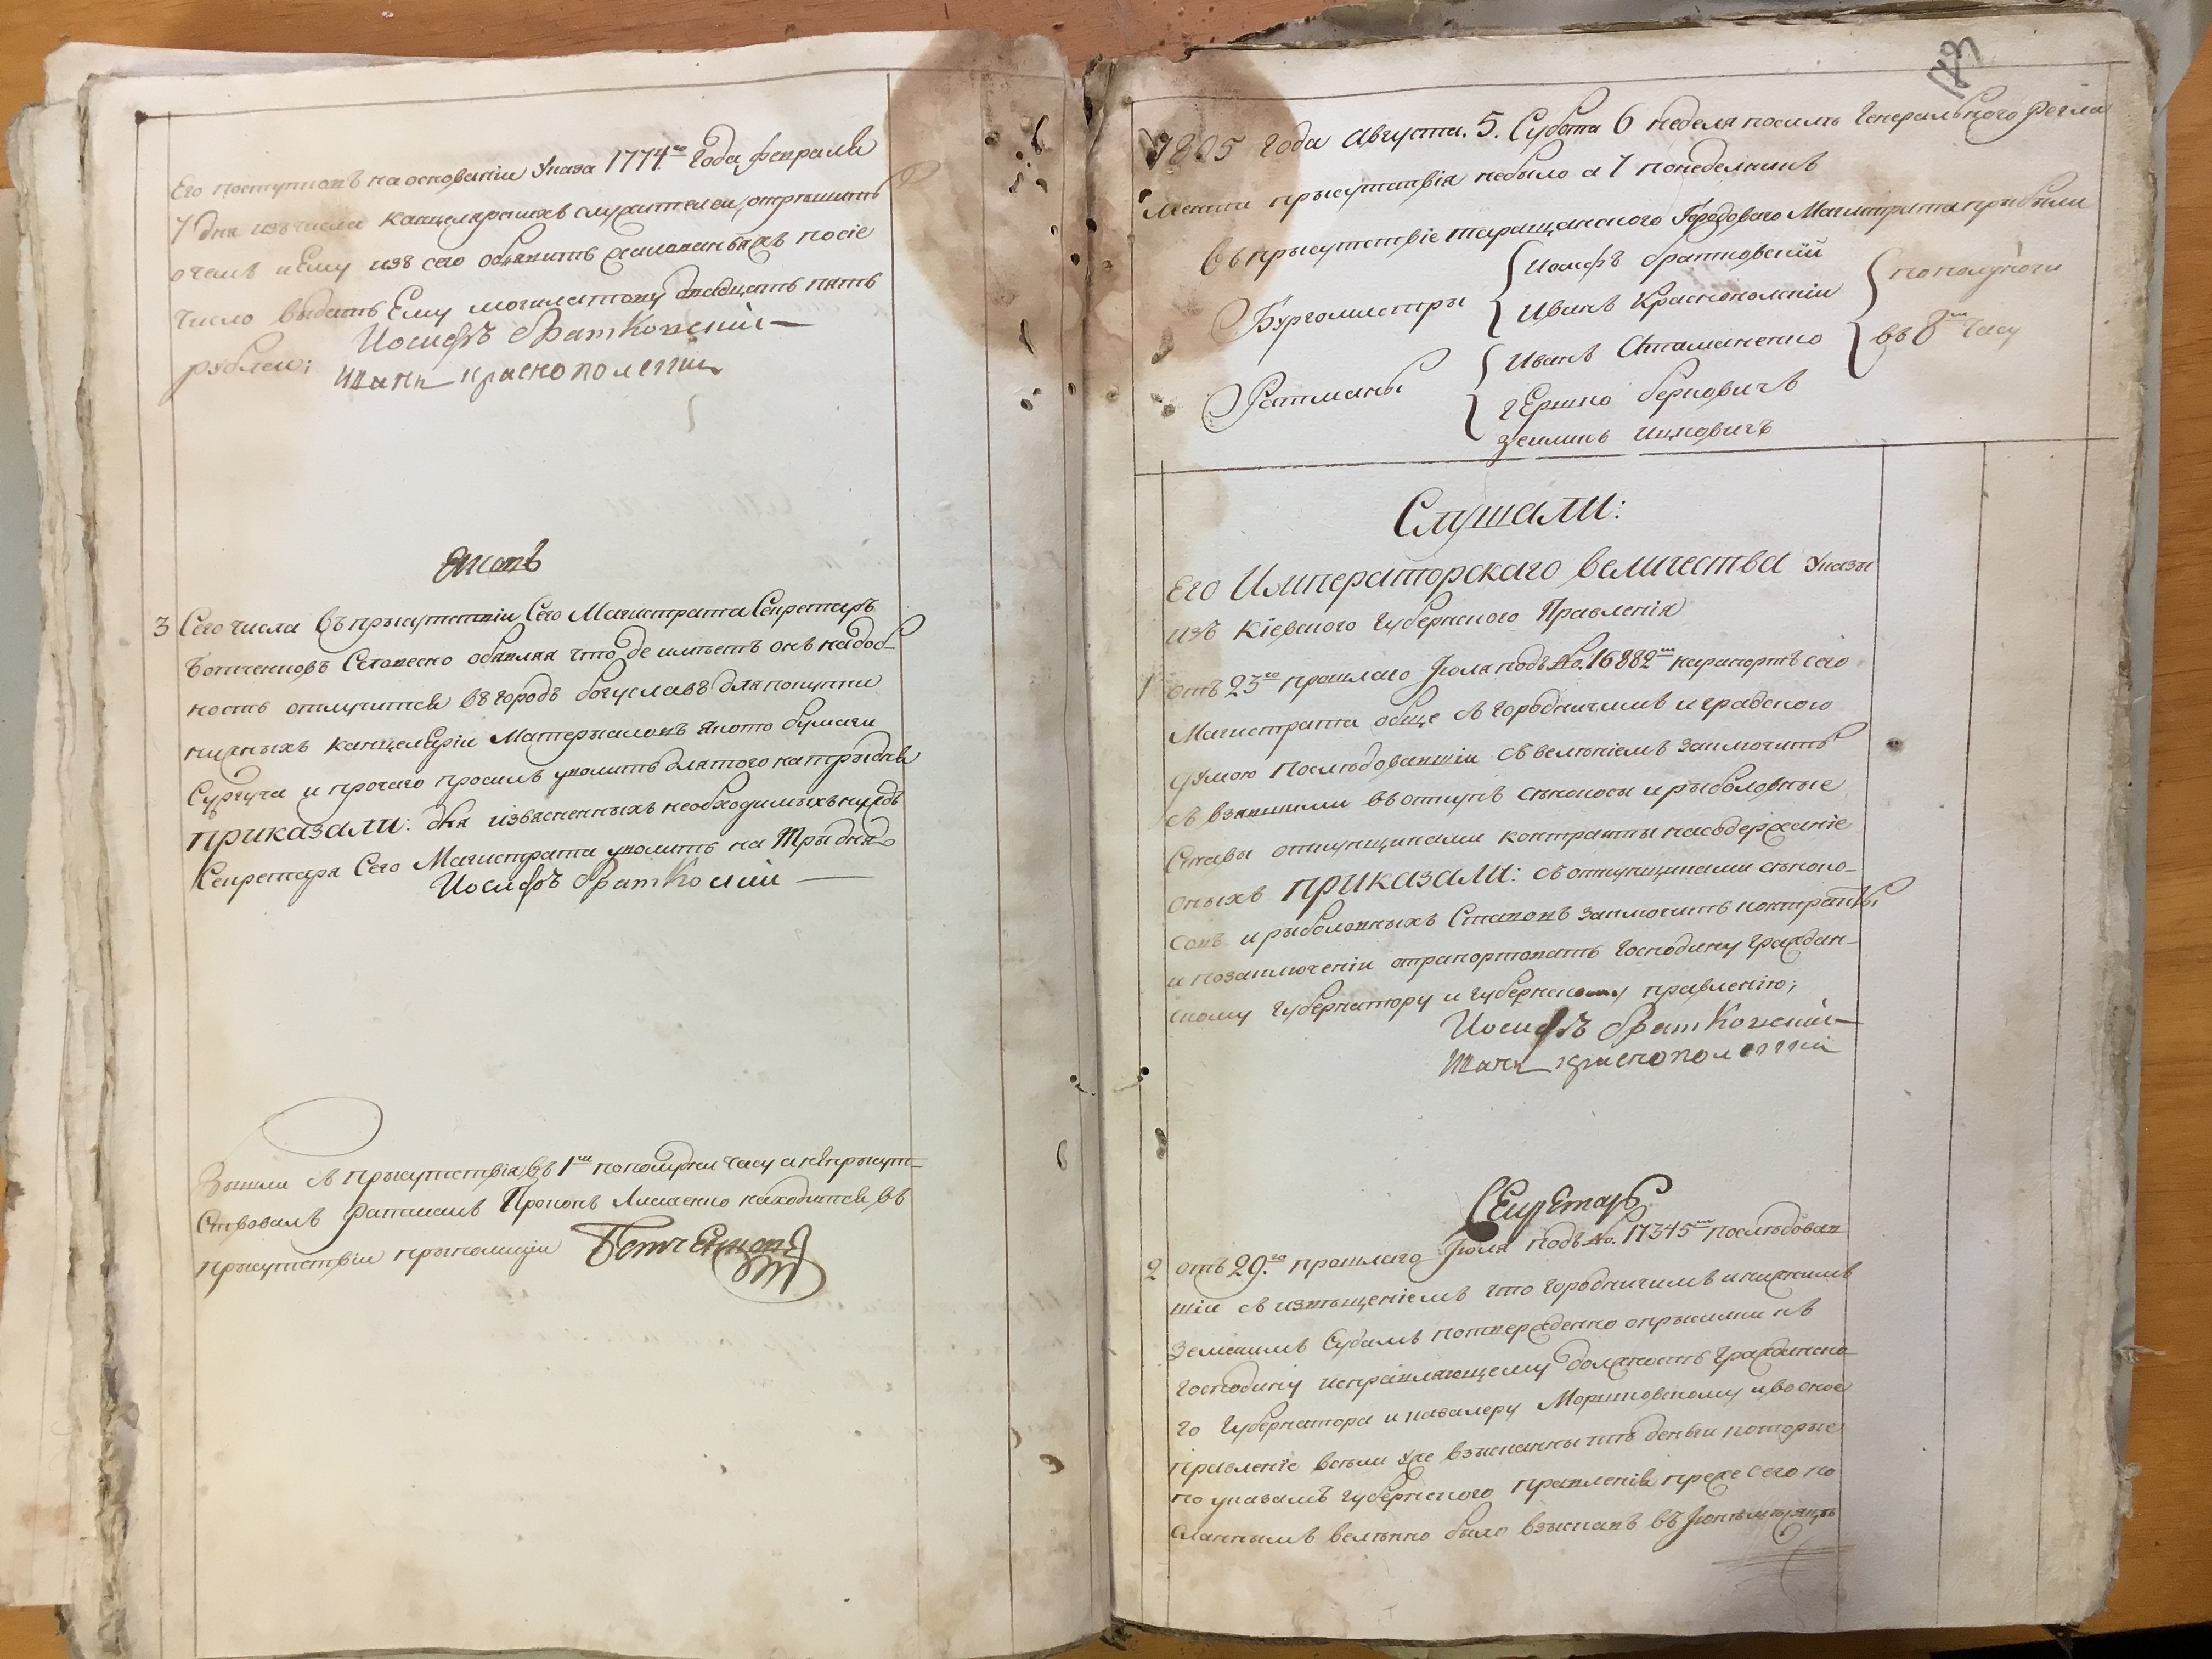 Его поступковъ на основаніи указа 1774го года февраля
7 дня изъ числа канцелярскихъ служителей отрешить
о чемъ и Ему изъ сего объявить жалованья жъ посіе
число выдать Ему двадцать пять
рублей;
Иосифъ Братковскій
Иванъ Краснополскій
3 Сего числа въ присутствіи Сего Магистрата Секретарь
Словесно объявля что де имѣетъ онъ надоб-
ность отлучится въ городъ Богуславъ для покупки
нужныхъ канцеляріи Матерыаловъ якото бумаги
Сургуча и прочаго просилъ уволить для того на три дня
приказали: для изъясненныхъ необходимыхъ нуждъ
Секретаря Сего Магистрата уволить на три дня
Иосифъ Братковскій
Вышли съ присутствія въ 1мъ пополудни часу а неприсут-
ствовалъ Ратманъ Прокопъ Лисаенко находится въ
присутствіи приполиціи
183
1805 года Августа. 5. Субота 6 неделя посилѣ Генерального Регла
мента присутствія небыло а 7 понеделникъ
Въ присутствіе таращанского Городоваго Магистрата прибыли
Бургомистры
Иосифъ Братковскій
Иванъ Краснополскій
Ратманы
Иванъ Атаманенко
Гершко Берковичъ
Зейликъ Ицковичъ
пополуночи
въ 8мъ часу
Слушали:
Его Императорскаго величества Указы
изъ Кіевского Губернского Правленія
1 отъ 23го прошлаго Июля подъ №. 16882мъ нарапортъ сего
Магистрата обще съ городничимъ и градского
думою Последовавшій съ веленіемъ заключить
съ взявшими въ откупъ сенокосы и рыболовные
Ставы откупщиками контракты насодержаніе
оныхъ приказали: съ откупщиками сеноко-
совъ и рыболовныхъ Ставовъ заключить контракты
и позаключеніи отрапортовать Господину граждан-
скому Губернатору и губернскому правленію;
Иосифъ Братковскій
Иванъ Краснополскій
Секретарь
2 отъ 29.го прошлаго Июля подъ №. 17345мъ последовав
шій съ извещеніемъ что городничимъ и нижнимъ
земскимъ Судамъ потверждено опрысилки къ
господину исправляющему должность Гражданско
го Губернатора и кавалеру Моршковскому и во оное
правленіе всели уже взысканны тѣ деньги которые
по указамъ губернского правленія преже сего по
сланнымъ велѣнно было взыскавъ въ Июнѣ мѣсяцѣ